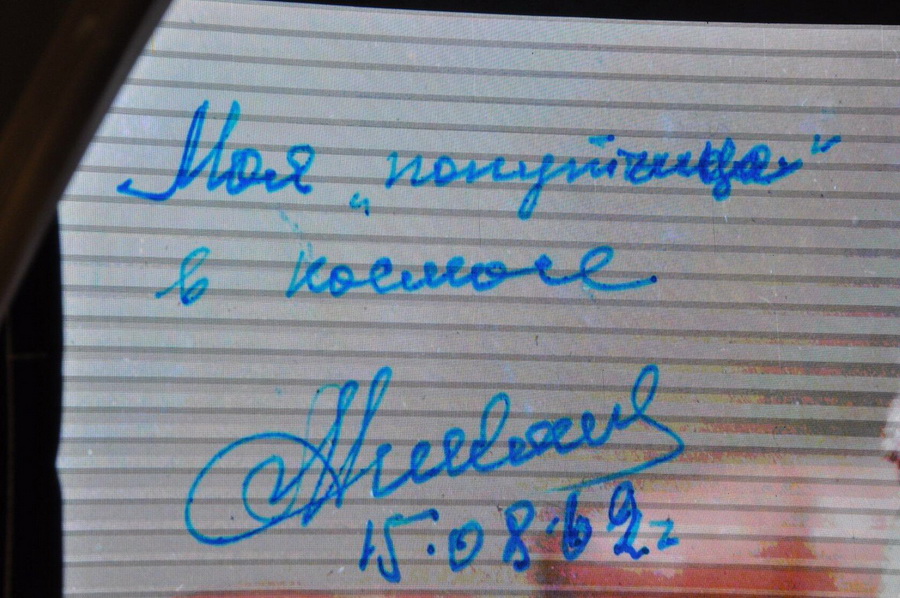 Моя „попутчица“
в космосе
15.08.62г